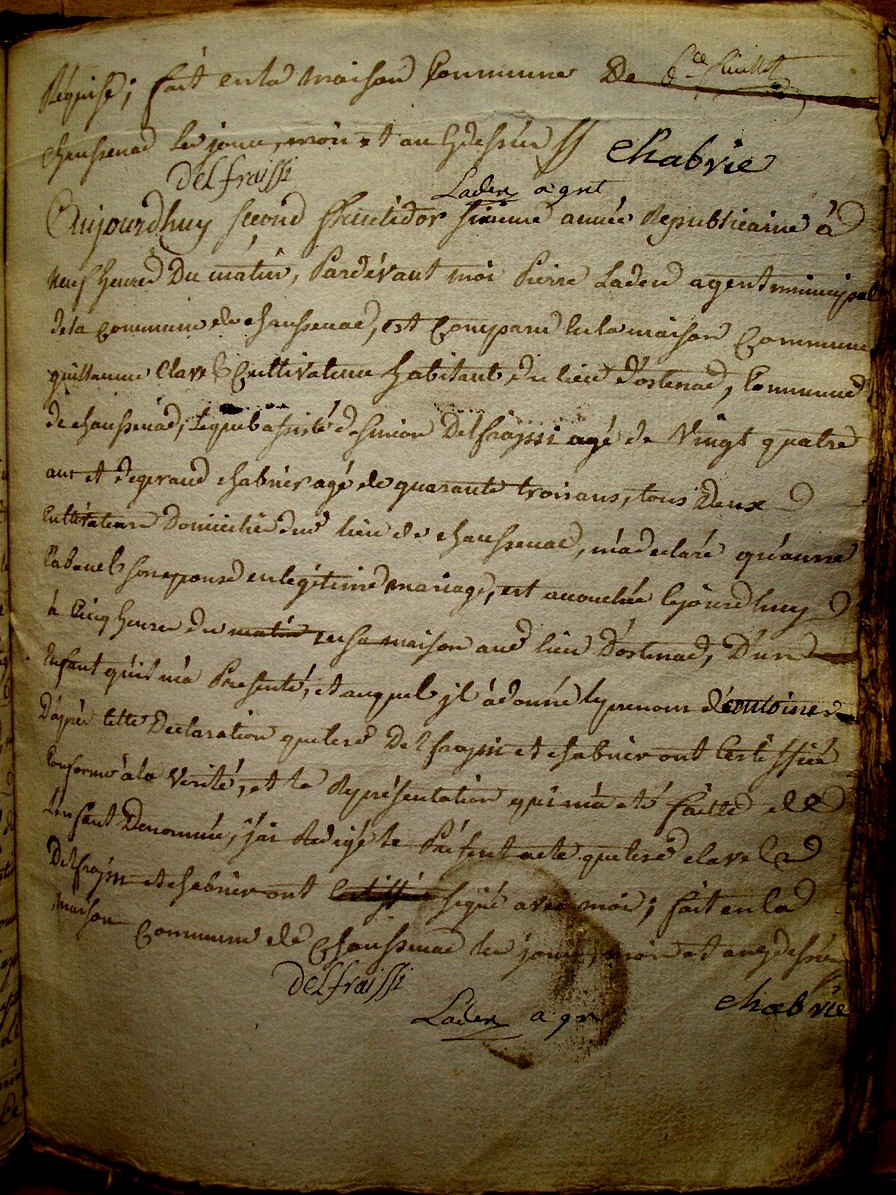 Réquise; fait en la maison Commune De
chaussenac les jour, mois et an susdits // chabrie
Delfraissi Laden agnt
Aujourdhuy second thermidor sixieme année Republicaine à
neuf heures Du matin, Pardévant moi Pierre Laden agent municipal
de la Commune de chaussenac, est Comparu en la maison Commune
guillaume Clavel Cultivateur habitant du lieu d'ostenac, Commune
de chaussenac, lequel assisté de Simon Delfraissi agé de Vingt quatre
ans et de geraud chabrier agé de quarante trois ans, tous deux
Cultivateurs Domiciliés du lieu de chaussenac, m'a declaré qu'anne
Cabanel son epouse en légitime mariage, est accouchée cejourdhuy
à Cinq heures du matin en sa maison aud lieu D'ostenac, D'un
Enfant qu'il m'a Presenté, et auquel jl à donné le prenom d'antoine
D'après cette Declaration que lesd Delfraissi et chabrier ont Certiffiée
Conforme à la Verité, et la Représentation qui m'a eté faitte de
L'enfant Denommé, j'ai Redigé le Présent acte que lesd clavel
Delfraissi et chabrier ont signé avec moi; fait en la
maison Commune de Chaussenac les jour, mois et an susdits
Delfraissi
Laden agnt chabrie